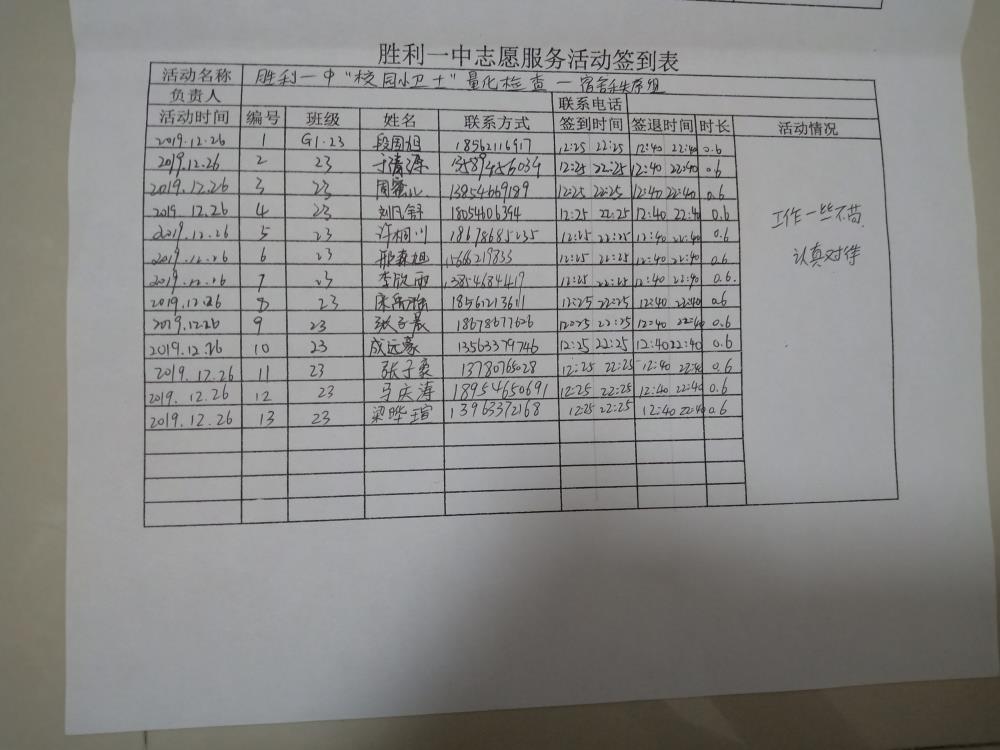 胜利一中志愿服务活动签到表
活动名称 胜利一中"校园小卫士"量化检查 — 宿舍秩序组
负责人 联系电话
活动时间 编号 班级 姓名 联系方式 签到时间 签退时间 时长 活动情况
2019.12.26 1 G1.23 段周旭 18562116917 12:25 22:25 12:40 22:40 0.6
2019.12.26 2 23 于清源 13589456034 12:25 22:25 12:40 22:40 0.6
2019.12.26 3 23 13854669189 12:25 22:25 12:40 22:40 0.6
2019.12.26 4 23 刘凡舒 18054606394 12:25 22:25 12:40 22:40 0.6
2019.12.26 5 23 许桐川 18678685235 12:25 22:25 12:40 22:40 0.6
2019.12.26 6 23 邢森旭 15666219833 12:25 22:25 12:40 22:40 0.6
2019.12.26 7 23 李欣雨 13854684419 12:25 22:25 12:40 22:40 0.6.
2019.12.26 8 23 18561213611 12:25 22:25 12:40 22:40 0.6
2019.12.26 9 23 张子晨 18678677626 12:25 22:25 12:40 22:40 0.6
2019.12.26 10 23 成远豪 13563379746 12:25 22:25 12:40 22:40 0.6
2019.12.26 11 23 张子柔 13780765028 12:25 22:25 12:40 22:40 0.6
2019.12.26 12 23 马庆涛 18954650691 12:25 22:25 12:40 22:40 0.6
2019.12.26 13 23 梁晔瑄 13963372168 12:25 22:25 12:40 22:40 0.6
工作一丝不苟,
认真对待